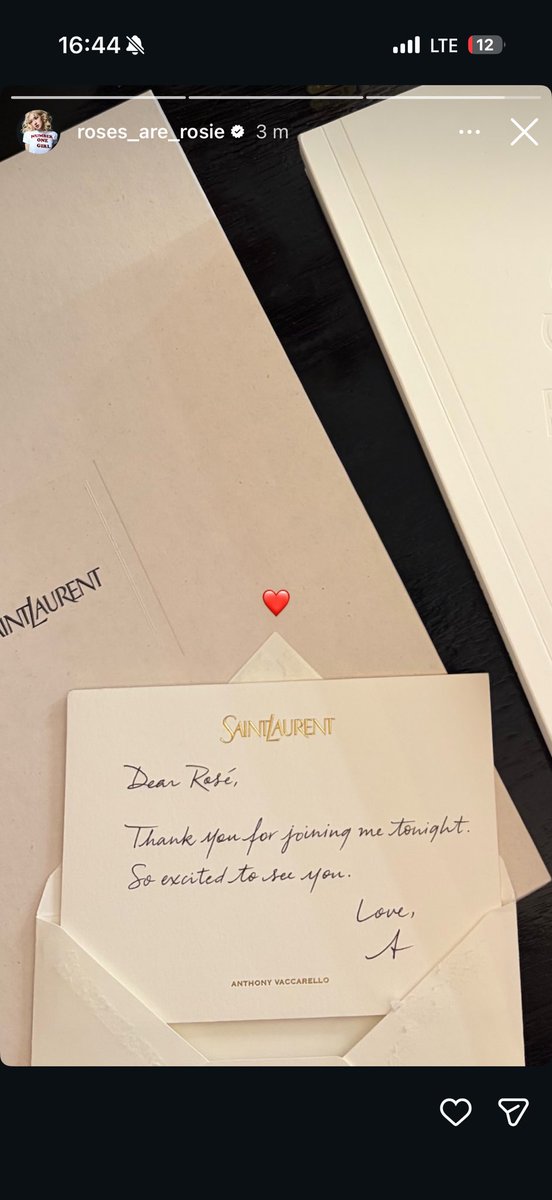 16:44
LTE
12
roses_are_rosie 3 m
SAINT LAURENT
SAINT LAURENT
Dear Rosé,
Thank you for joining me tonight.
So excited to see you.
Love,
A
ANTHONY VACCARELLO